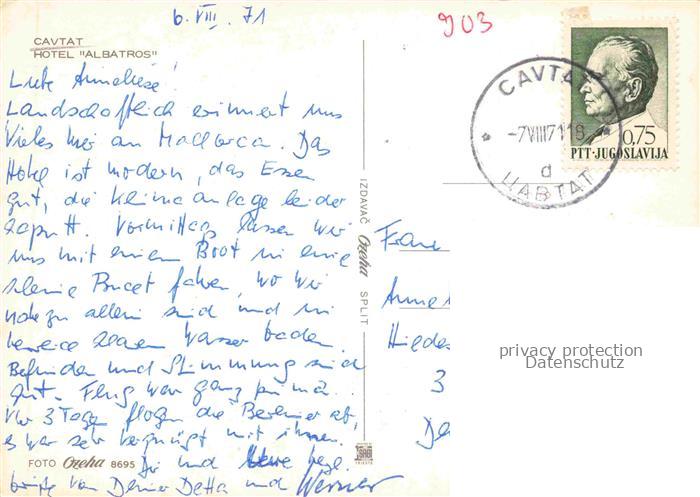 6. VIII. 71
903
CAVTAT
HOTEL "ALBATROS"
Liebe Anneliese!
Landschaftlich erinnert uns
Vieles hier an Mallorca. Das
Hotel ist modern, das Essen
gut, die Klimaanlage leider
kaputt. Vormittags lassen wir
uns mit einem Boot in eine
kleine Bucht fahren, wo wir
nahezu allein sind und in
klarem Wasser baden.
Befinden und Stimmung sind
gut. Flug war ganz prima.
Vor 3 Tagen flogen die Berliner ab,
es war sehr vergnügt mit ihnen.
Dir und
von Deiner Detta und Werner
FOTO Ozeha 8695
IZDAVAČ Ozeha SPLIT
CAVTAT
-7VIII71 18
d
ЦАВТАТ
0,75
PTT·JUGOSLAVIJA
Frau
Anne
Hildes
3
privacy protection
Datenschutz